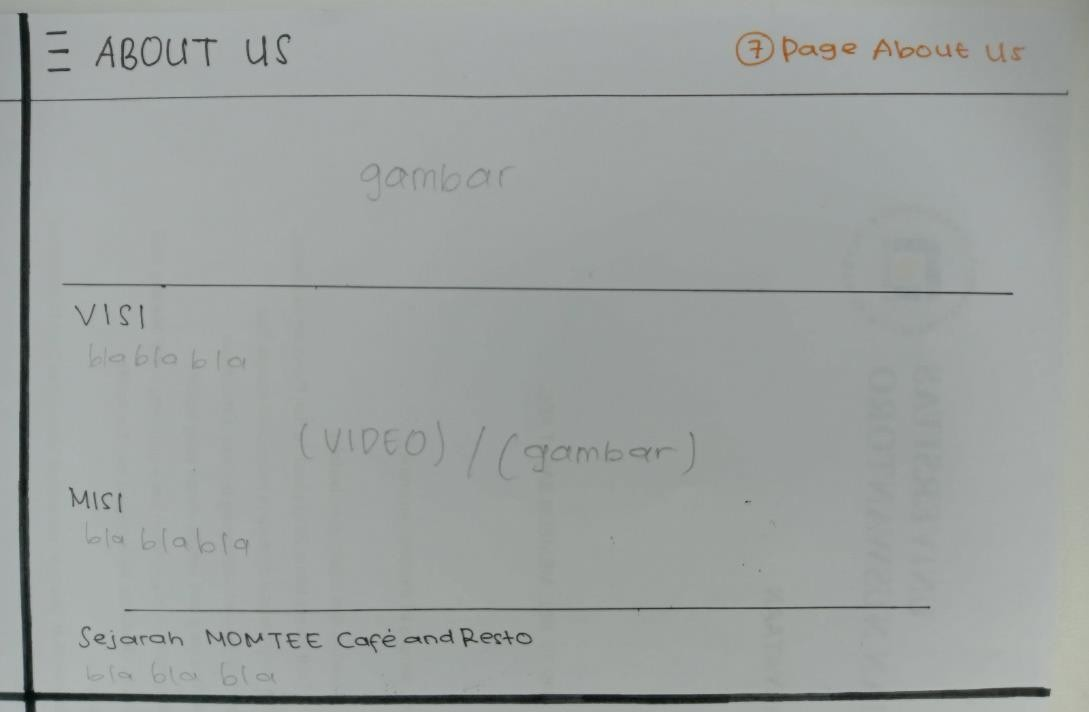 ABOUT US
7 page About Us
gambar
VISI
bla bla bla
(VIDEO) / (gambar)
MISI
bla bla bla
Sejarah MOMTEE Café and Resto
bla bla bla